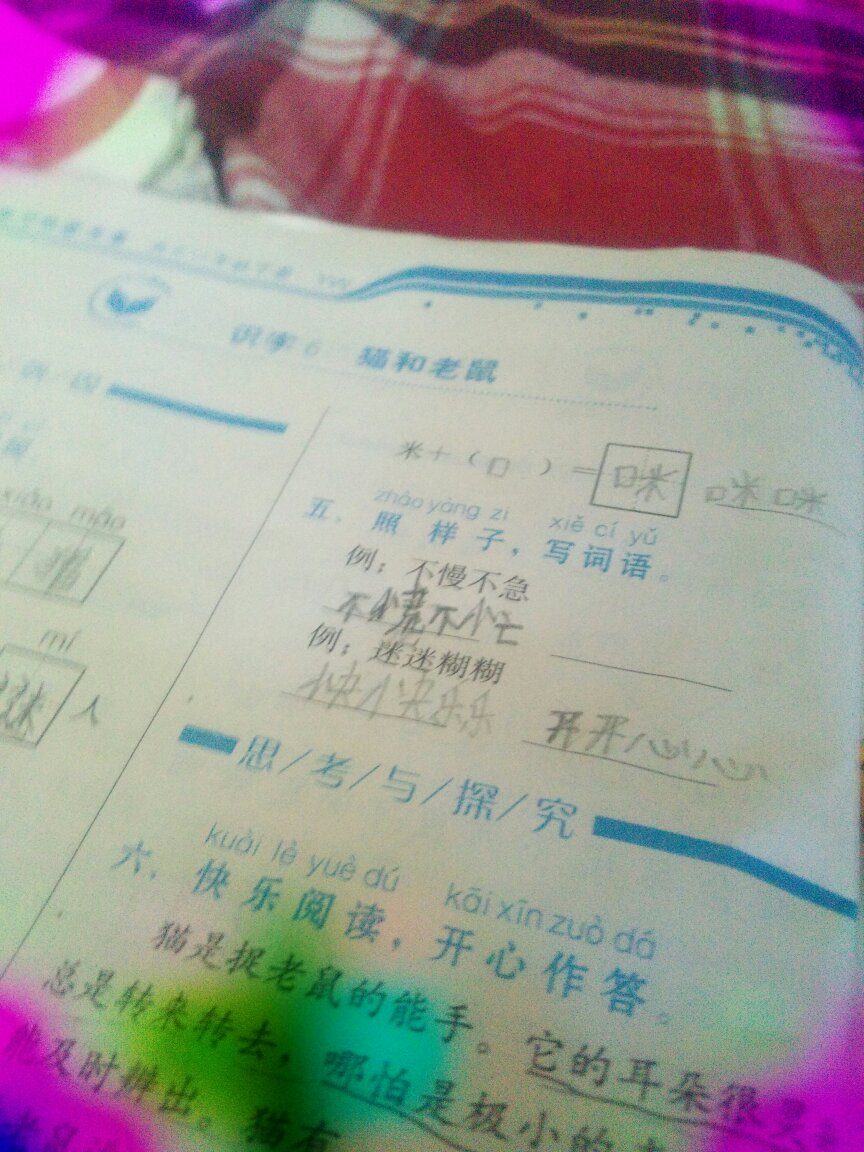 识字6 猫和老鼠
xiǎo māo
猫
mí
迷人
米+(口)=咪 咪咪
zhào yàng zi xiě cí yǔ
五、照样子，写词语。
例：不慢不急
不慌不忙
例：迷迷糊糊
快快乐乐 开开心心
思/考/与/探/究
kuài lè yuè dú kāi xīn zuò dá
六、快乐阅读，开心作答。
猫是捉老鼠的能手。它的耳朵很灵
总是转来转去，哪怕是极小的
能及时辨出。猫有